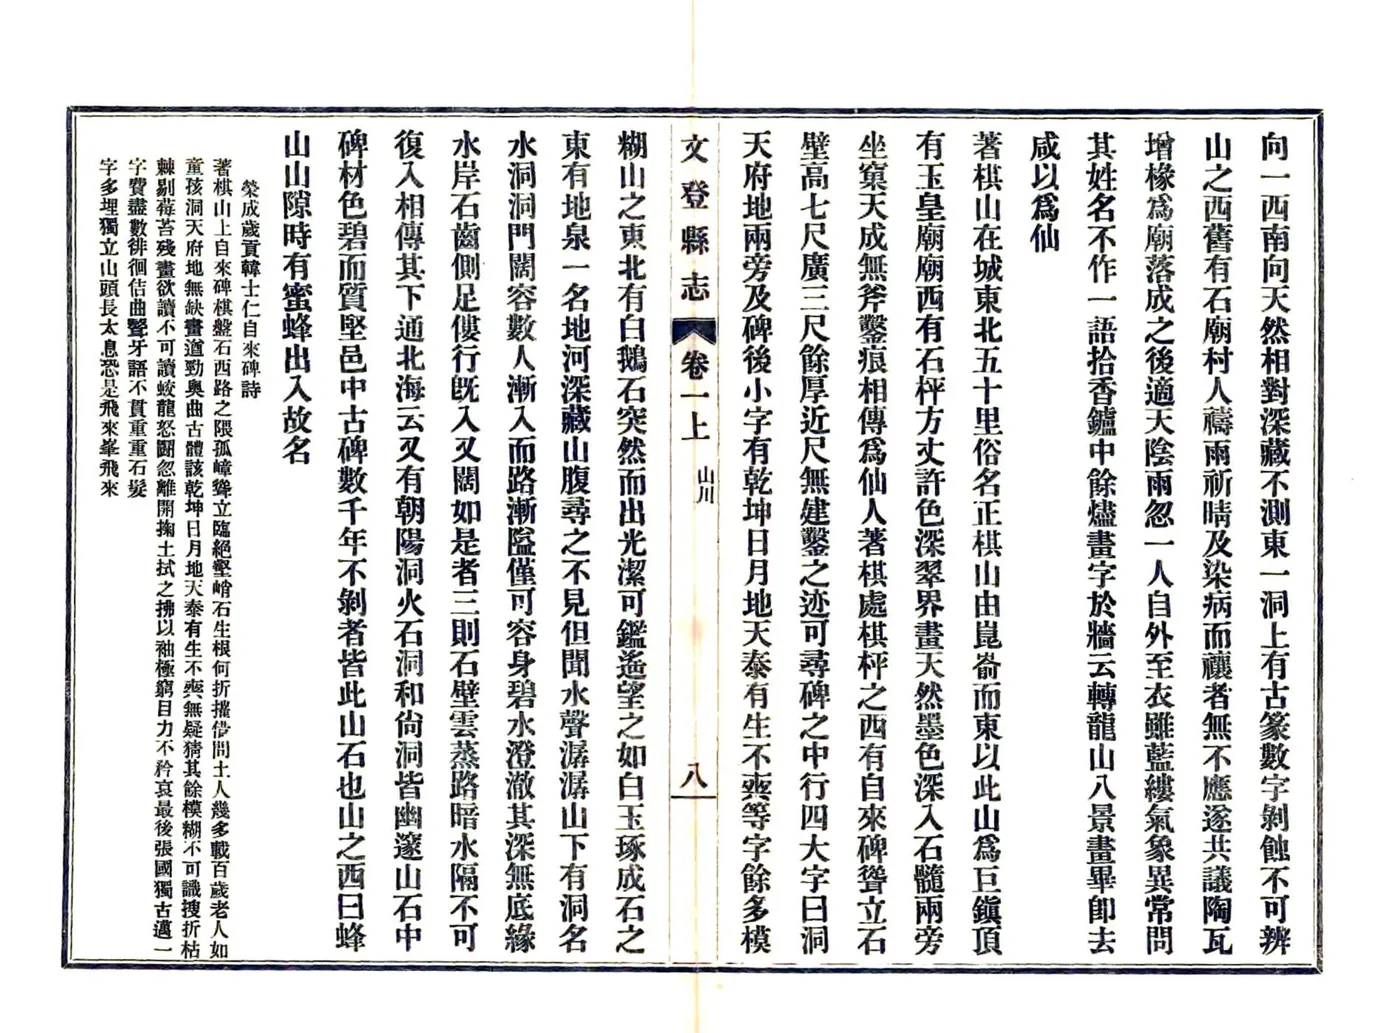 向一西南向天然相對深藏不測東一洞上有古篆數字剝蝕不可辨
山之西舊有石廟村人禱雨祈晴及染病而禳者無不應遂共議陶瓦
增椽爲廟落成之後適天陰雨忽一人自外至衣雖藍縷氣象異常問
其姓名不作一語拾香鑪中餘燼畫字於牆云轉龍山八景畫畢卽去
咸以爲仙
著棋山在城東北五十里俗名正棋山由崑崳而東以此山爲巨鎭頂
有玉皇廟廟西有石枰方丈許色深翠界畫天然墨色深入石髓兩旁
坐窠天成無斧鑿痕相傳爲仙人著棋處棋枰之西有自來碑聳立石
壁高七尺廣三尺餘厚近尺無建鑿之迹可尋碑之中行四大字曰洞
天府地兩旁及碑後小字有乾坤日月地天泰有生不爽等字餘多模
文登縣志 卷一上 山川 八
糊山之東北有白鵝石突然而出光潔可鑑遙望之如白玉琢成石之
東有地泉一名地河深藏山腹尋之不見但聞水聲潺潺山下有洞名
水洞洞門闊容數人漸入而路漸隘僅可容身碧水澄澈其深無底緣
水岸石齒側足僂行旣入又闊如是者三則石壁雲蒸路暗水隔不可
復入相傳其下通北海云又有朝陽洞火石洞和尙洞皆幽邃山石中
碑材色碧而質堅邑中古碑數千年不剝者皆此山石也山之西曰蜂
山山隙時有蜜蜂出入故名
榮成歲貢韓士仁自來碑詩
著棋山上自來碑棋盤石西路之隈孤嶂聳立臨絕壑峭石生根何折摧借問土人幾多載百歲老人如
童孩洞天府地無缺畫遒勁奧曲古體該乾坤日月地天泰有生不爽無疑猜其餘模糊不可識搜折枯
棘剔莓苔殘畫欲讀不可讀蛟龍怒鬬忽離開掬土拭之拂以袖極窮目力不矜哀最後張國獨古邁一
字費盡數徘徊佶曲聱牙語不貫重重石髮
字多埋獨立山頭長太息恐是飛來峯飛來